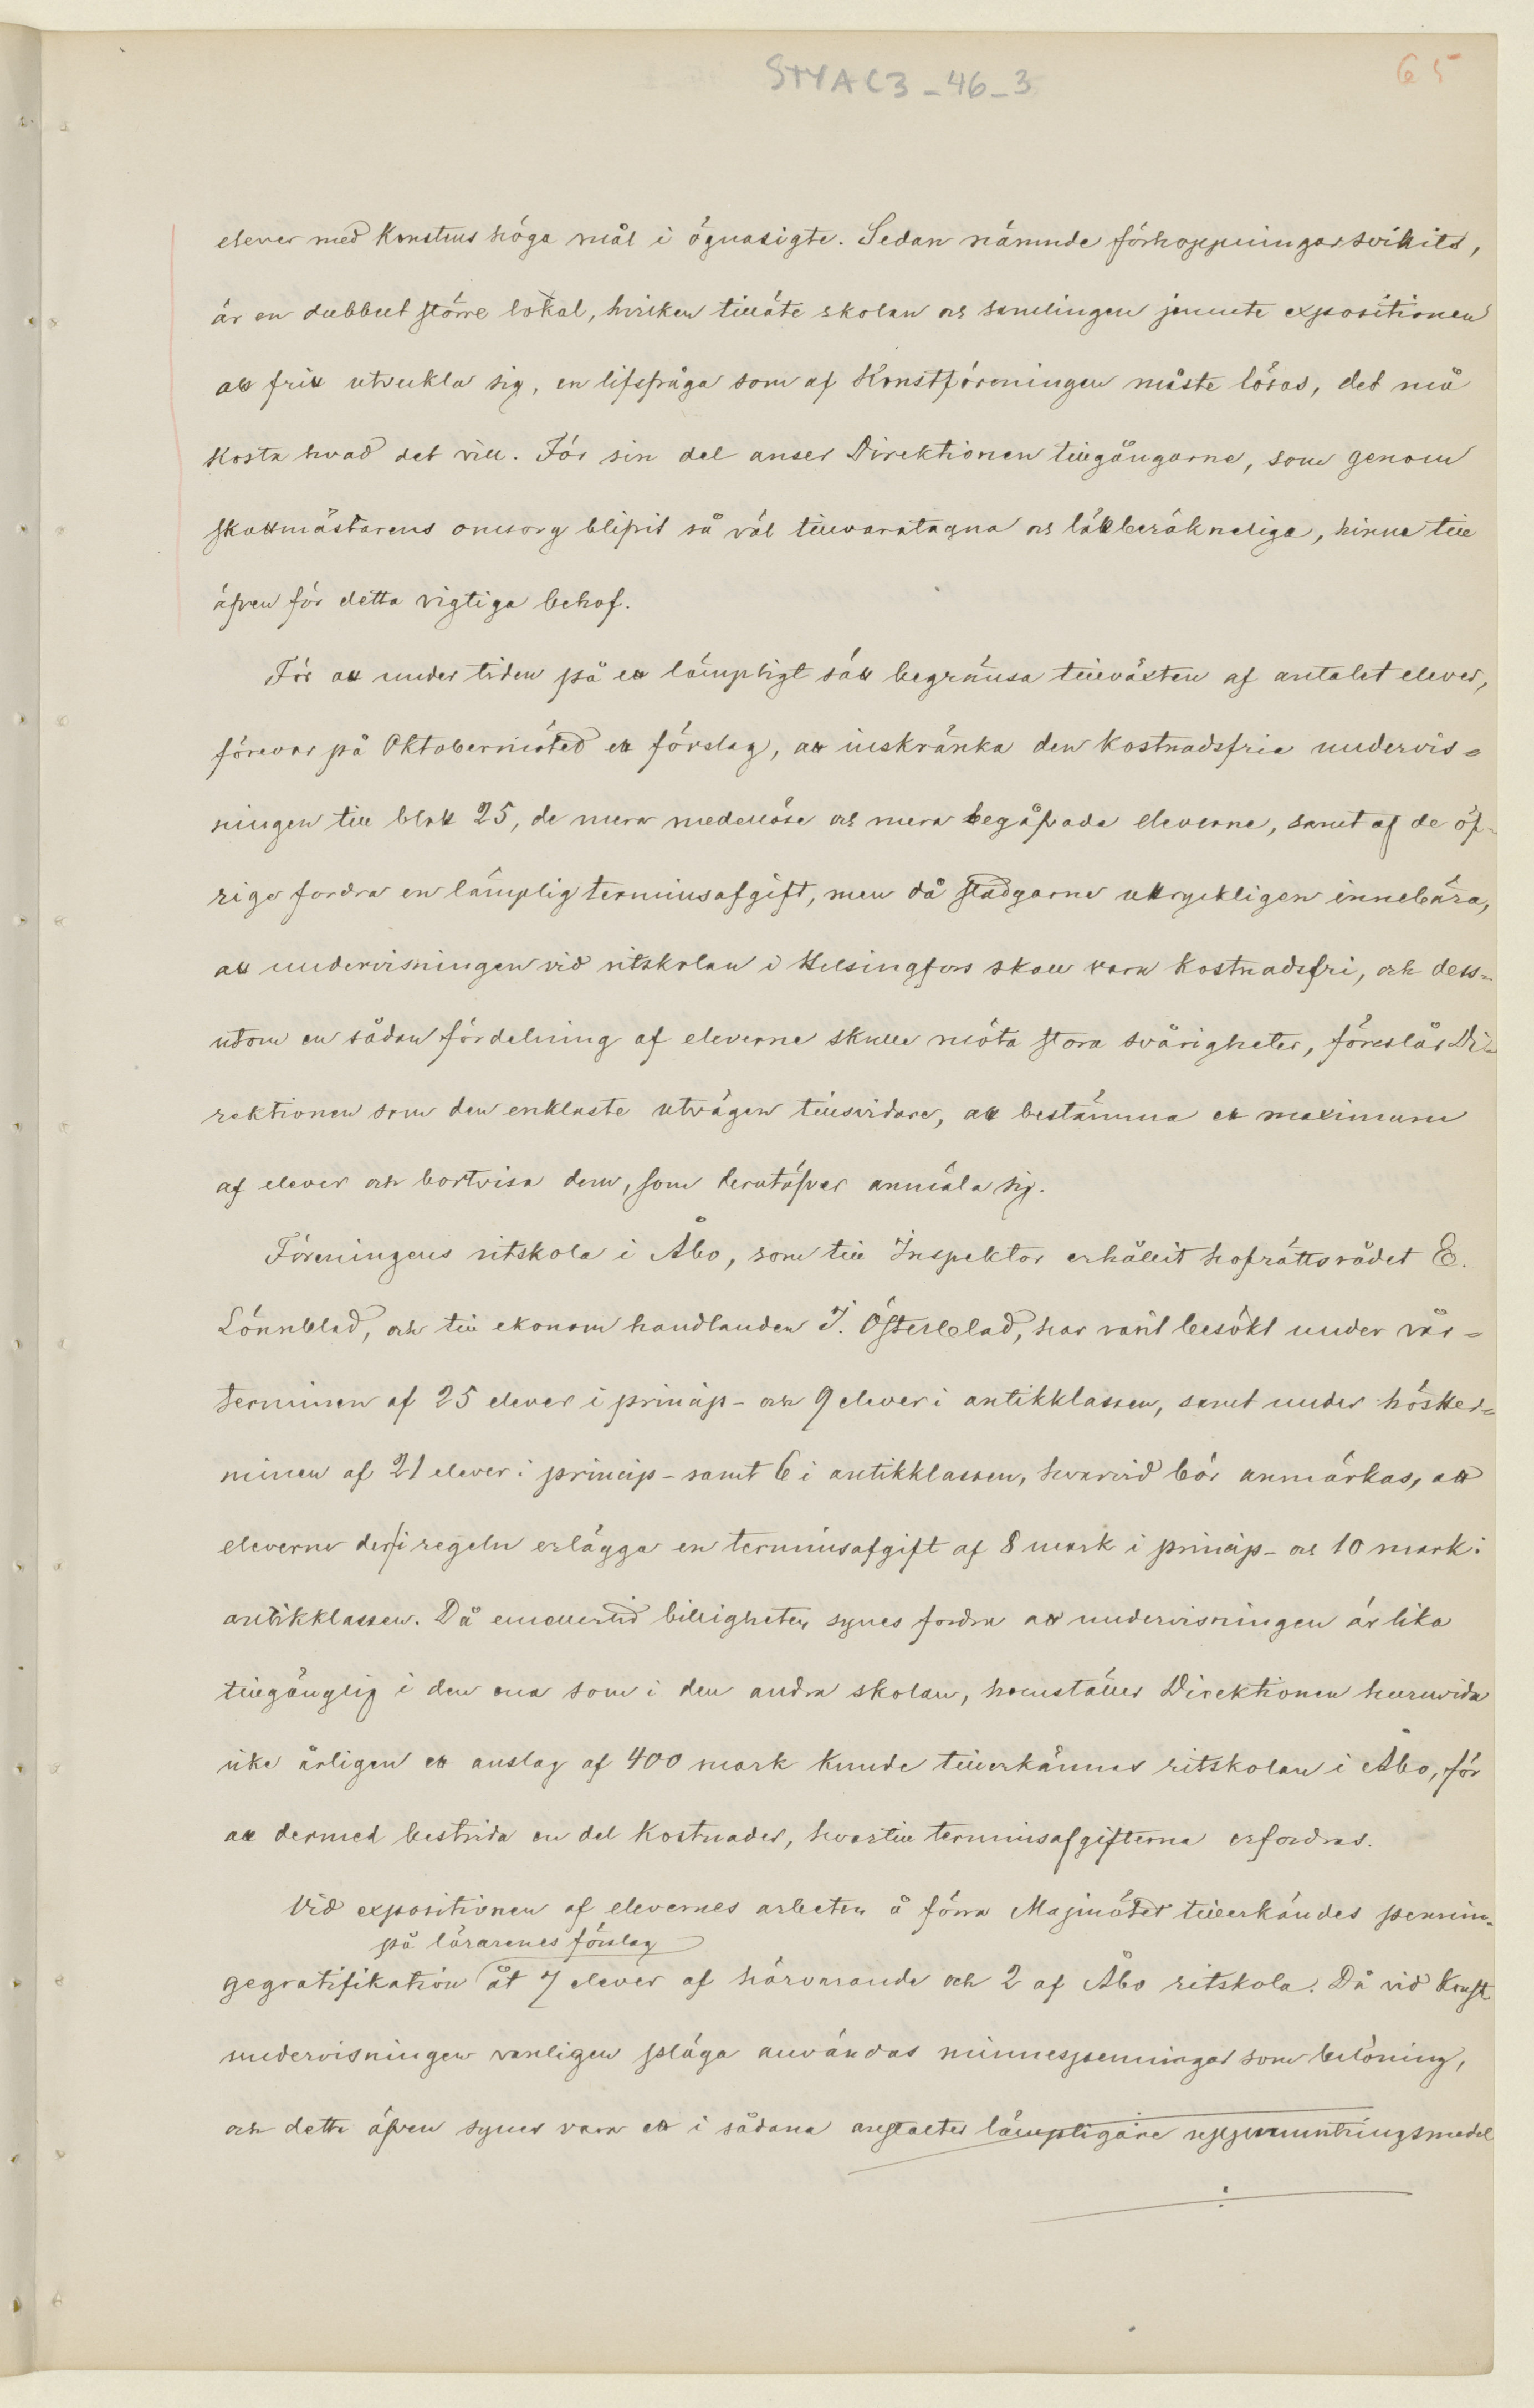 STYAC3_46_3
65
elever med konstens höga mål i ögnasigte. Sedan nämnde förhoppningar svikits,
är en dubbelt större lokal, hvilken tillåte skolan och samlingen jemte expositionen
att fritt utveckla sig, en lifsfråga som af Konstföreningen måste lösas, det må
kosta hvad det vill. För sin del anser Direktionen tillgångarne, som genom
skattmästarens omsorg blifvit så väl tillvaratagna och lättberäkneliga, hinna till
äfven för detta vigtiga behof.
För att under tiden på ett lämpligt sätt begränsa tillväxten af antalet elever,
förevar på Oktobermötet ett förslag, att inskränka den kostnadsfria undervis=
ningen till blott 25, de mera medellöse och mera begåfvade eleverne, samt af de öf-
riga fordra en lämplig terminsafgift, men då stadgarne uttryckligen innebära,
att undervisningen vid ritskolan i Helsingfors skall vara kostnadsfri, och dess=
utom en sådan fördelning af eleverne skulle möta stora svårigheter, föreslår Di=
rektionen som den enklaste utvägen tillsvidare, att bestämma ett maximum
af elever och bortvisa dem, som derutöfver anmäla sig.
Föreningens ritskola i Åbo, som till Inspektor erhållit hofrättsrådet E.
Lönnblad, och till ekonom handlanden J. Österblad, har varit besökt under vår=
terminen af 25 elever i princip- och 9 elever i antikklassen, samt under höstter=
minen af 21 elever i princip- samt 6 i antikklassen, hvarvid bör anmärkas, att
eleverne der i regeln erlägga en terminsafgift af 8 mark i princip- och 10 mark i
antikklassen. Då emellertid billigheten synes fordra att undervisningen är lika
tillgänglig i den ena som i den andra skolan, hemställer Direktionen huruvida
icke årligen ett anslag af 400 mark kunde tillerkännas ritskolan i Åbo, för
att dermed bestrida en del kostnader, hvartill terminsafgifterna erfordras.
Vid expositionen af elevernes arbeten å förra Majmötet tillerkändes pennin=
på lärarenes förslag
gegratifikation åt 7 elever af härvarande och 2 af Åbo ritskola. Då vid konst
undervisningen vanligen pläga användas minnespenningar som belöning,
och detta äfven synes vara ett i sådana anstalter lämpligare uppmuntringsmedel